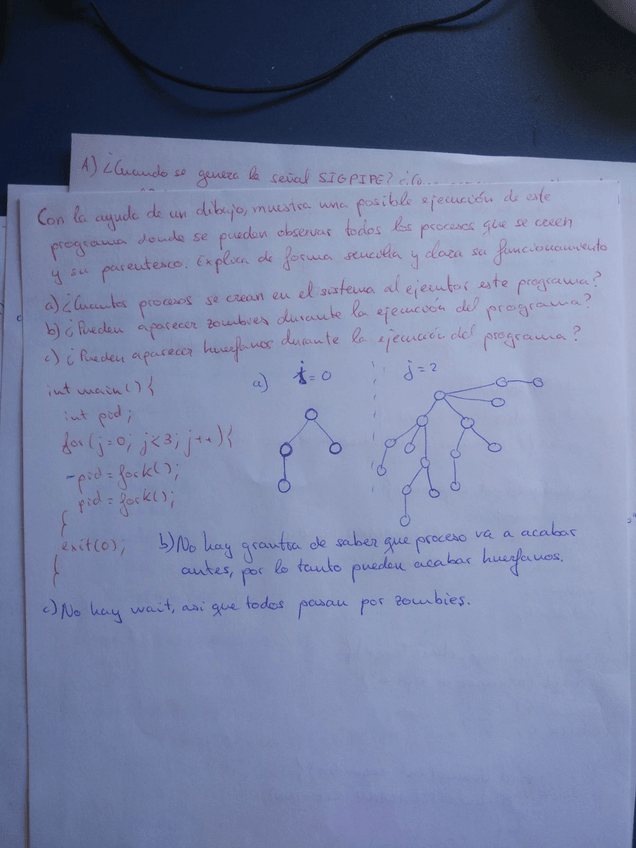 A) ¿Cuando se genera la señal SIGPIPE?
Con la ayuda de un dibajo, muestra una posible ejecución de este
programa donde se puedan observar todos los procesos que se creen
y su parentesco. Explica de forma sencilla y clara su funcionamiento
a) ¿Cuantos procesos se crean en el sistema al ejecutar este programa?
b) ¿Pueden aparecer zombies durante la ejecución del programa?
c) ¿Pueden aparecer huerfanos durante la ejecución del programa?
int main(){
int pid;
for(j=0; j<3; j++){
pid=fork();
pid=fork();
}
exit(0);
}
a) j=0
j=2
b) No hay grantia de saber que proceso va a acabar
antes, por lo tanto pueden acabar huerfanos.
c) No hay wait, asi que todos pasan por zombies.